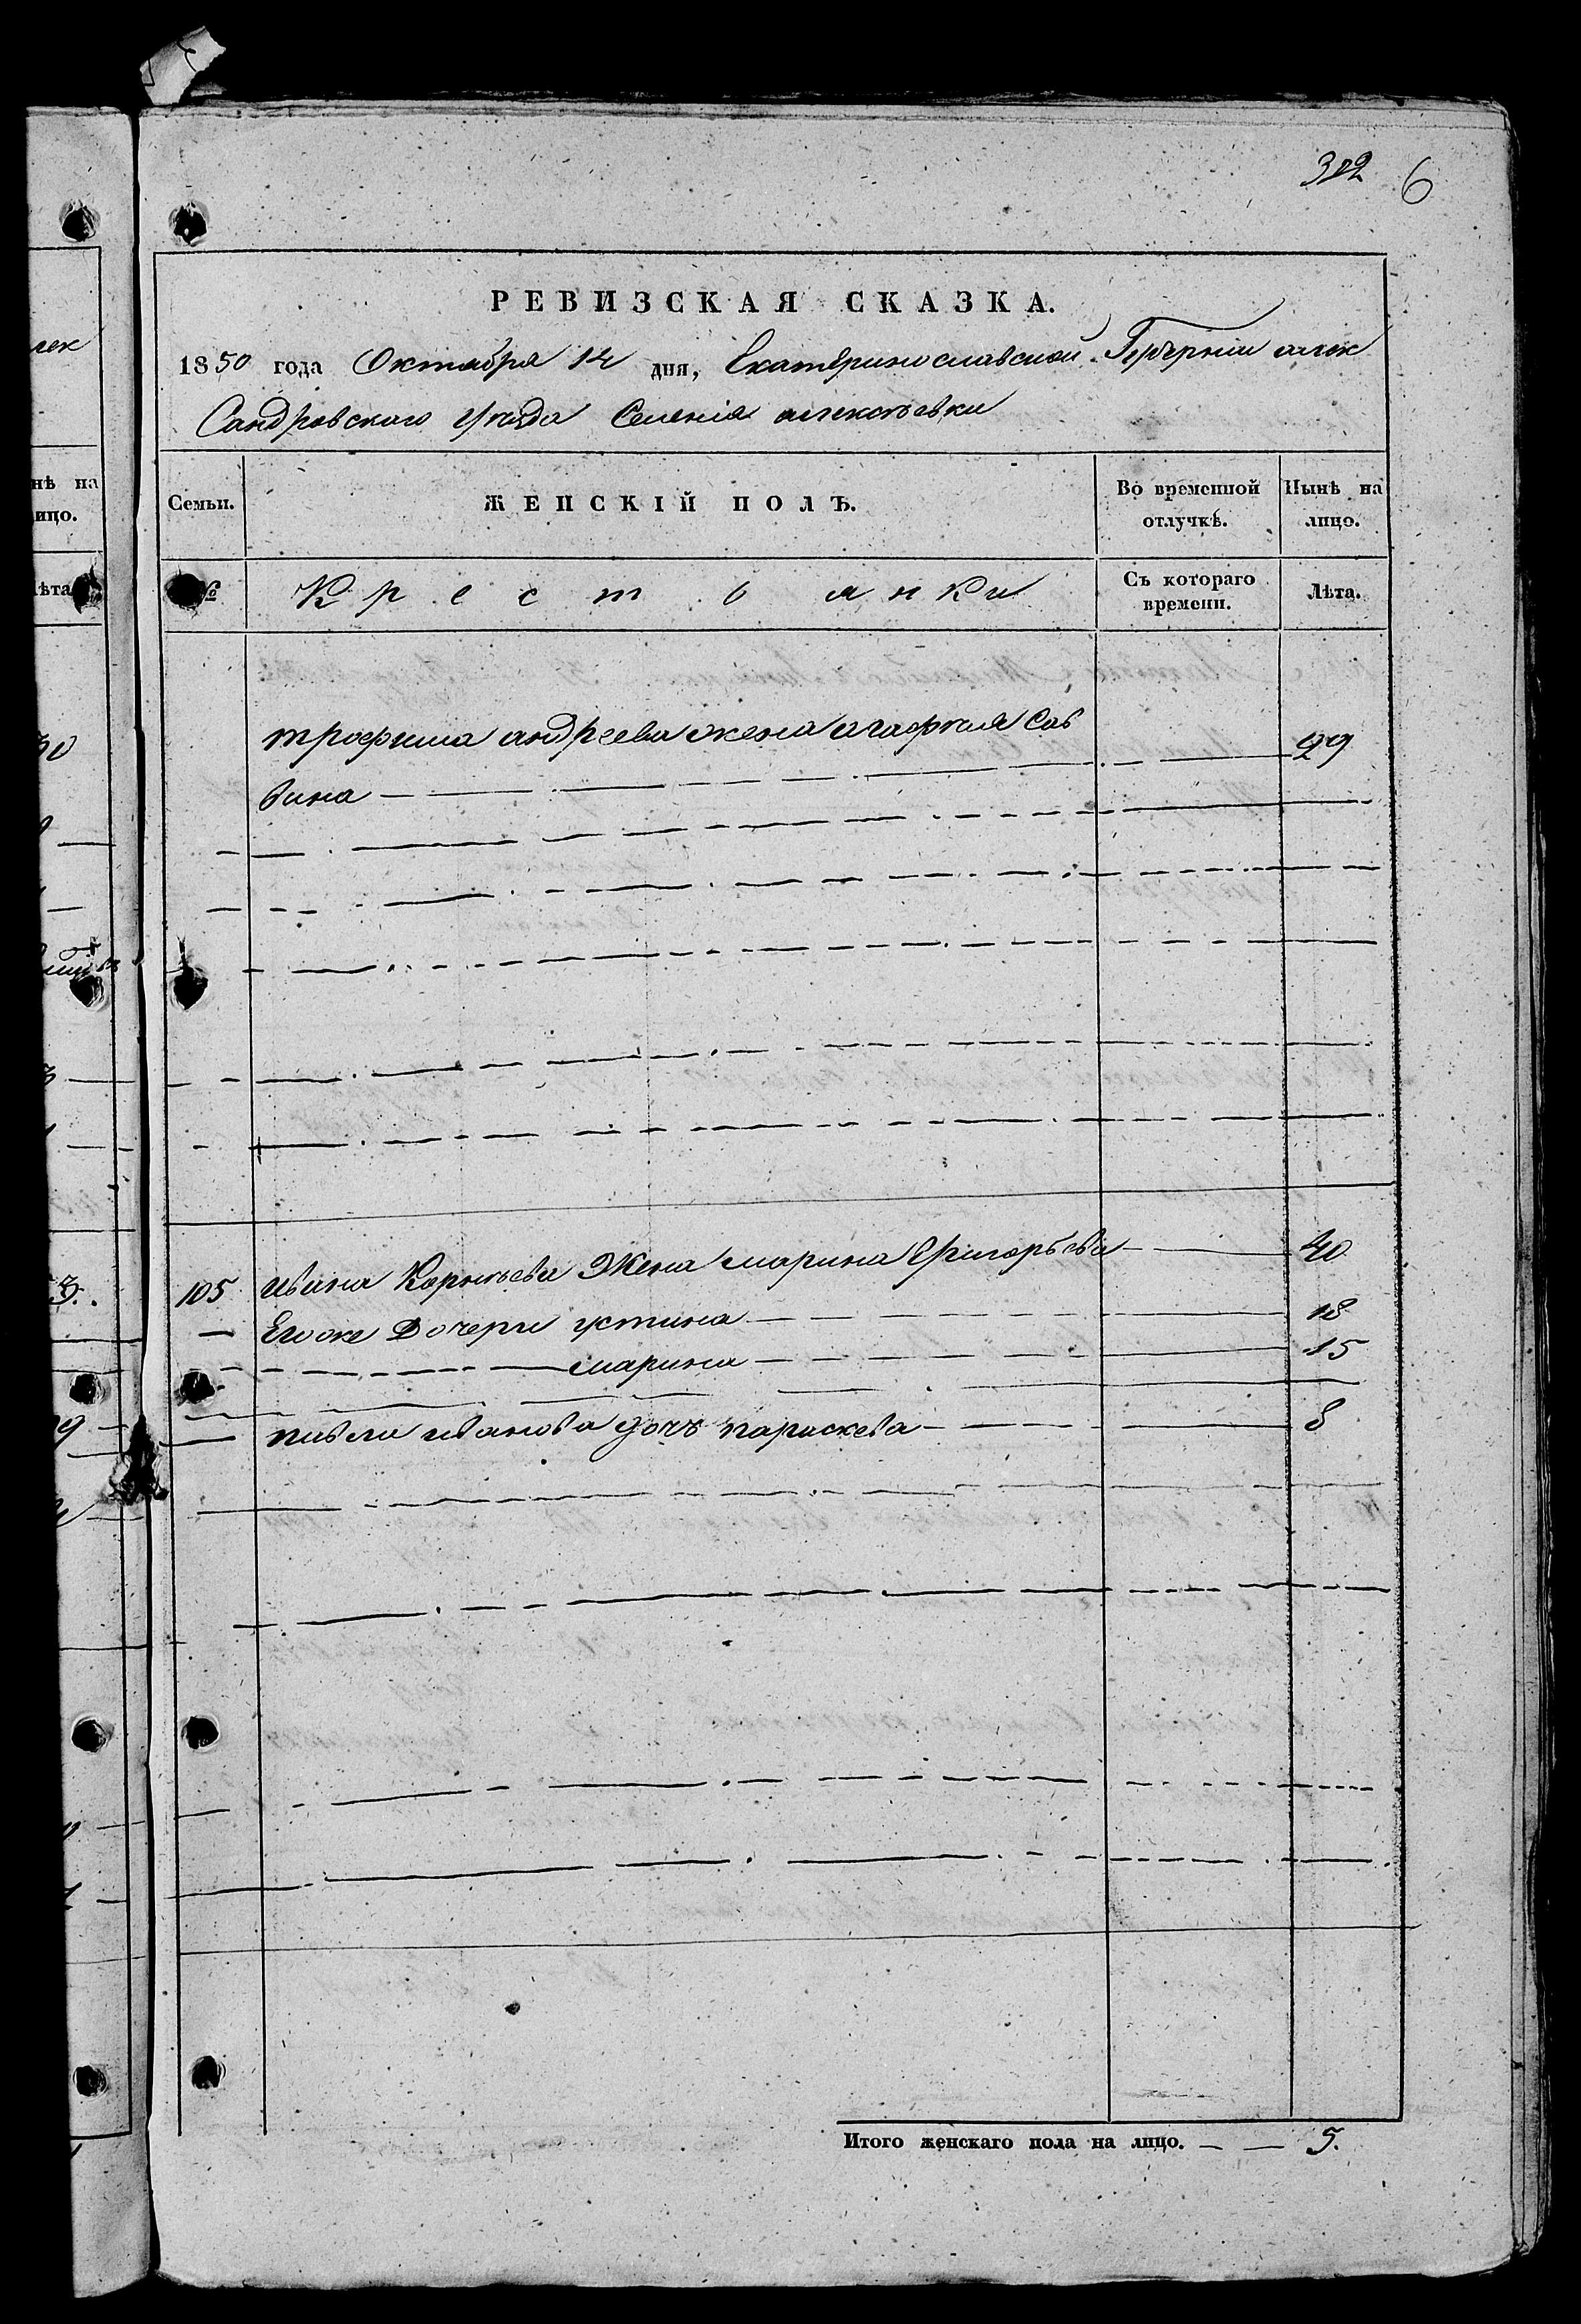 312 6
РЕВИЗСКАЯ СКАЗКА.
1850 года Октября 14 дня, Екатеринославской Губерніи алек
Сандровского Уезда Селенія алексѣевки
Семьи.
ЖЕНСКІЙ ПОЛЪ.
Во временной отлучкѣ.
Нынѣ на лицо.
№
Крестьянки
Съ котораго времени.
Лѣта.
трофима андреева жена агафия Сав
вина 29
105 ивана Корнѣева Жена марина Григорьева 40
Его же Дочери устина 18
марина 15
павла иванова дочь параскева 8
Итого женскаго пола на лицо. 5.
лек
нѣ на
ицо.
ѣта